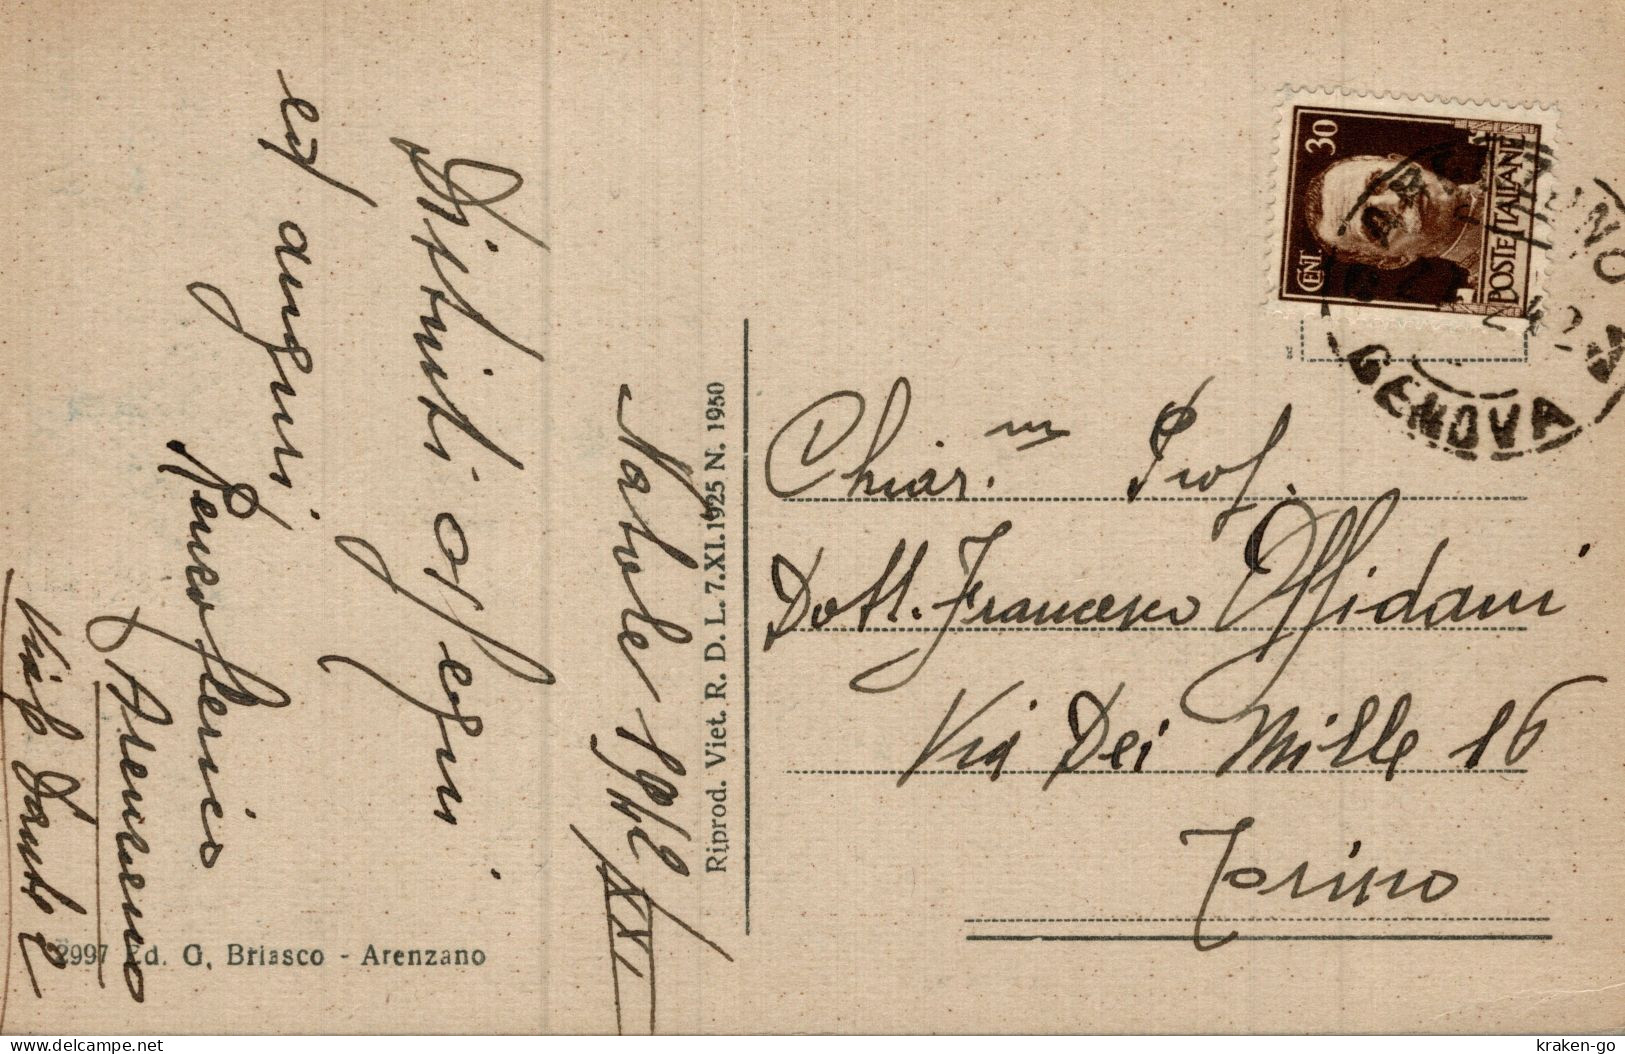 Natale 1942/XXI
Distinti ossequi
ed auguri
Arenzano
Viale Dante 2
Riprod. Viet. R. D. L. 7.XI.1925 N. 1950
2997 Ed. G. Briasco - Arenzano
CENT. 30
POSTE ITALIANE
ARENZANO
GENOVA
Chiar.mo Prof.
Dott. Francesco Offidani
Via Dei Mille 16
Torino
delcampe.net
kraken-go